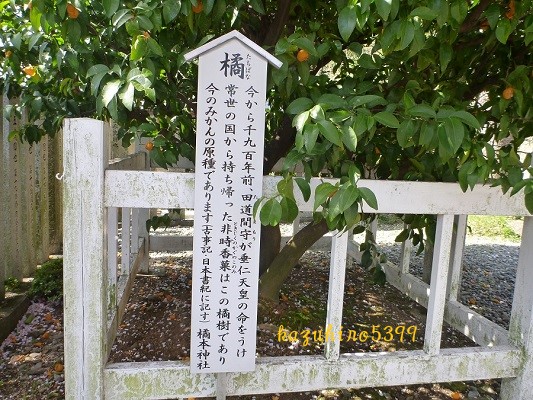 橘
たちばな
今から千九百年前、田道間守が垂仁天皇の命をうけ
常世の国から持ち帰った非時香菓はこの橘樹であり
ときじくのかぐのこのみ
今のみかんの原種であります（古事記・日本書紀に記す）
橘本神社
kazuhino5399